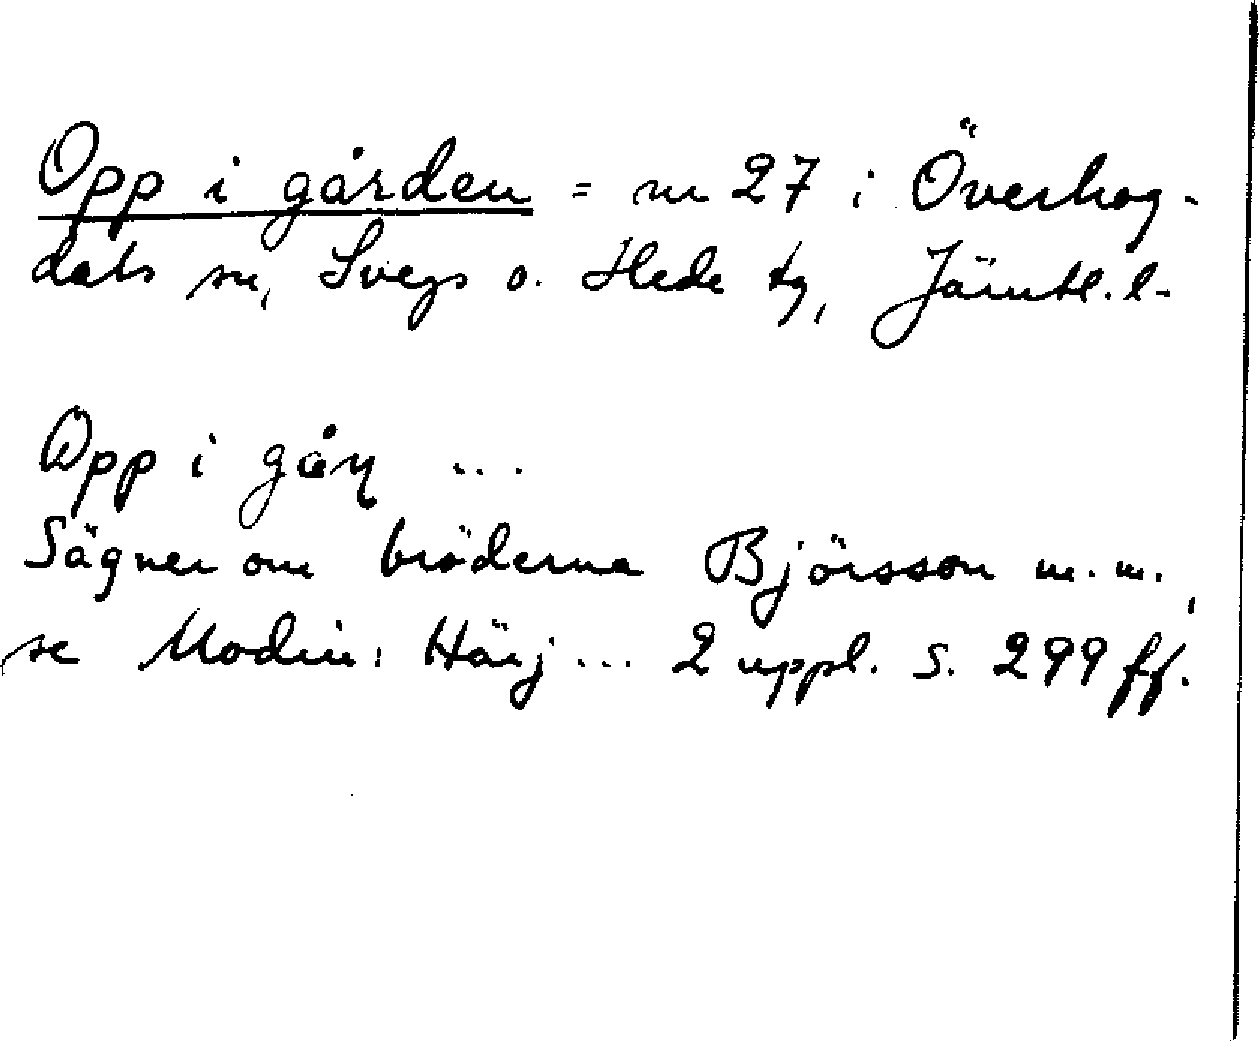 Opp i gården = nr 27 i Överhog-
dals sn, Svegs o. Hede tg, Jämtl. l.
Opp i gåɳ ...
Sägner om bröderna Björsson m.m.,
se Modin: Härj... 2 uppl. s. 299 ff.